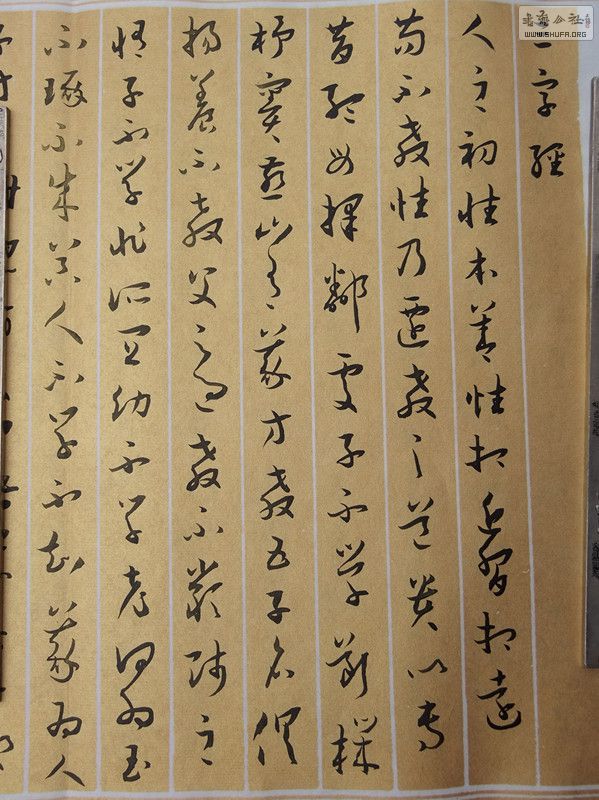 三字經
人之初性本善性相近習相遠
苟不教性乃遷教之道貴以專
昔孟母擇鄰處子不學斷機
杼竇燕山有義方教五子名俱
揚養不教父之過教不嚴師之
惰子不學非所宜幼不學老何為玉
不琢不成器人不學不知義為人
書法公社
WWW.SHUFA.ORG